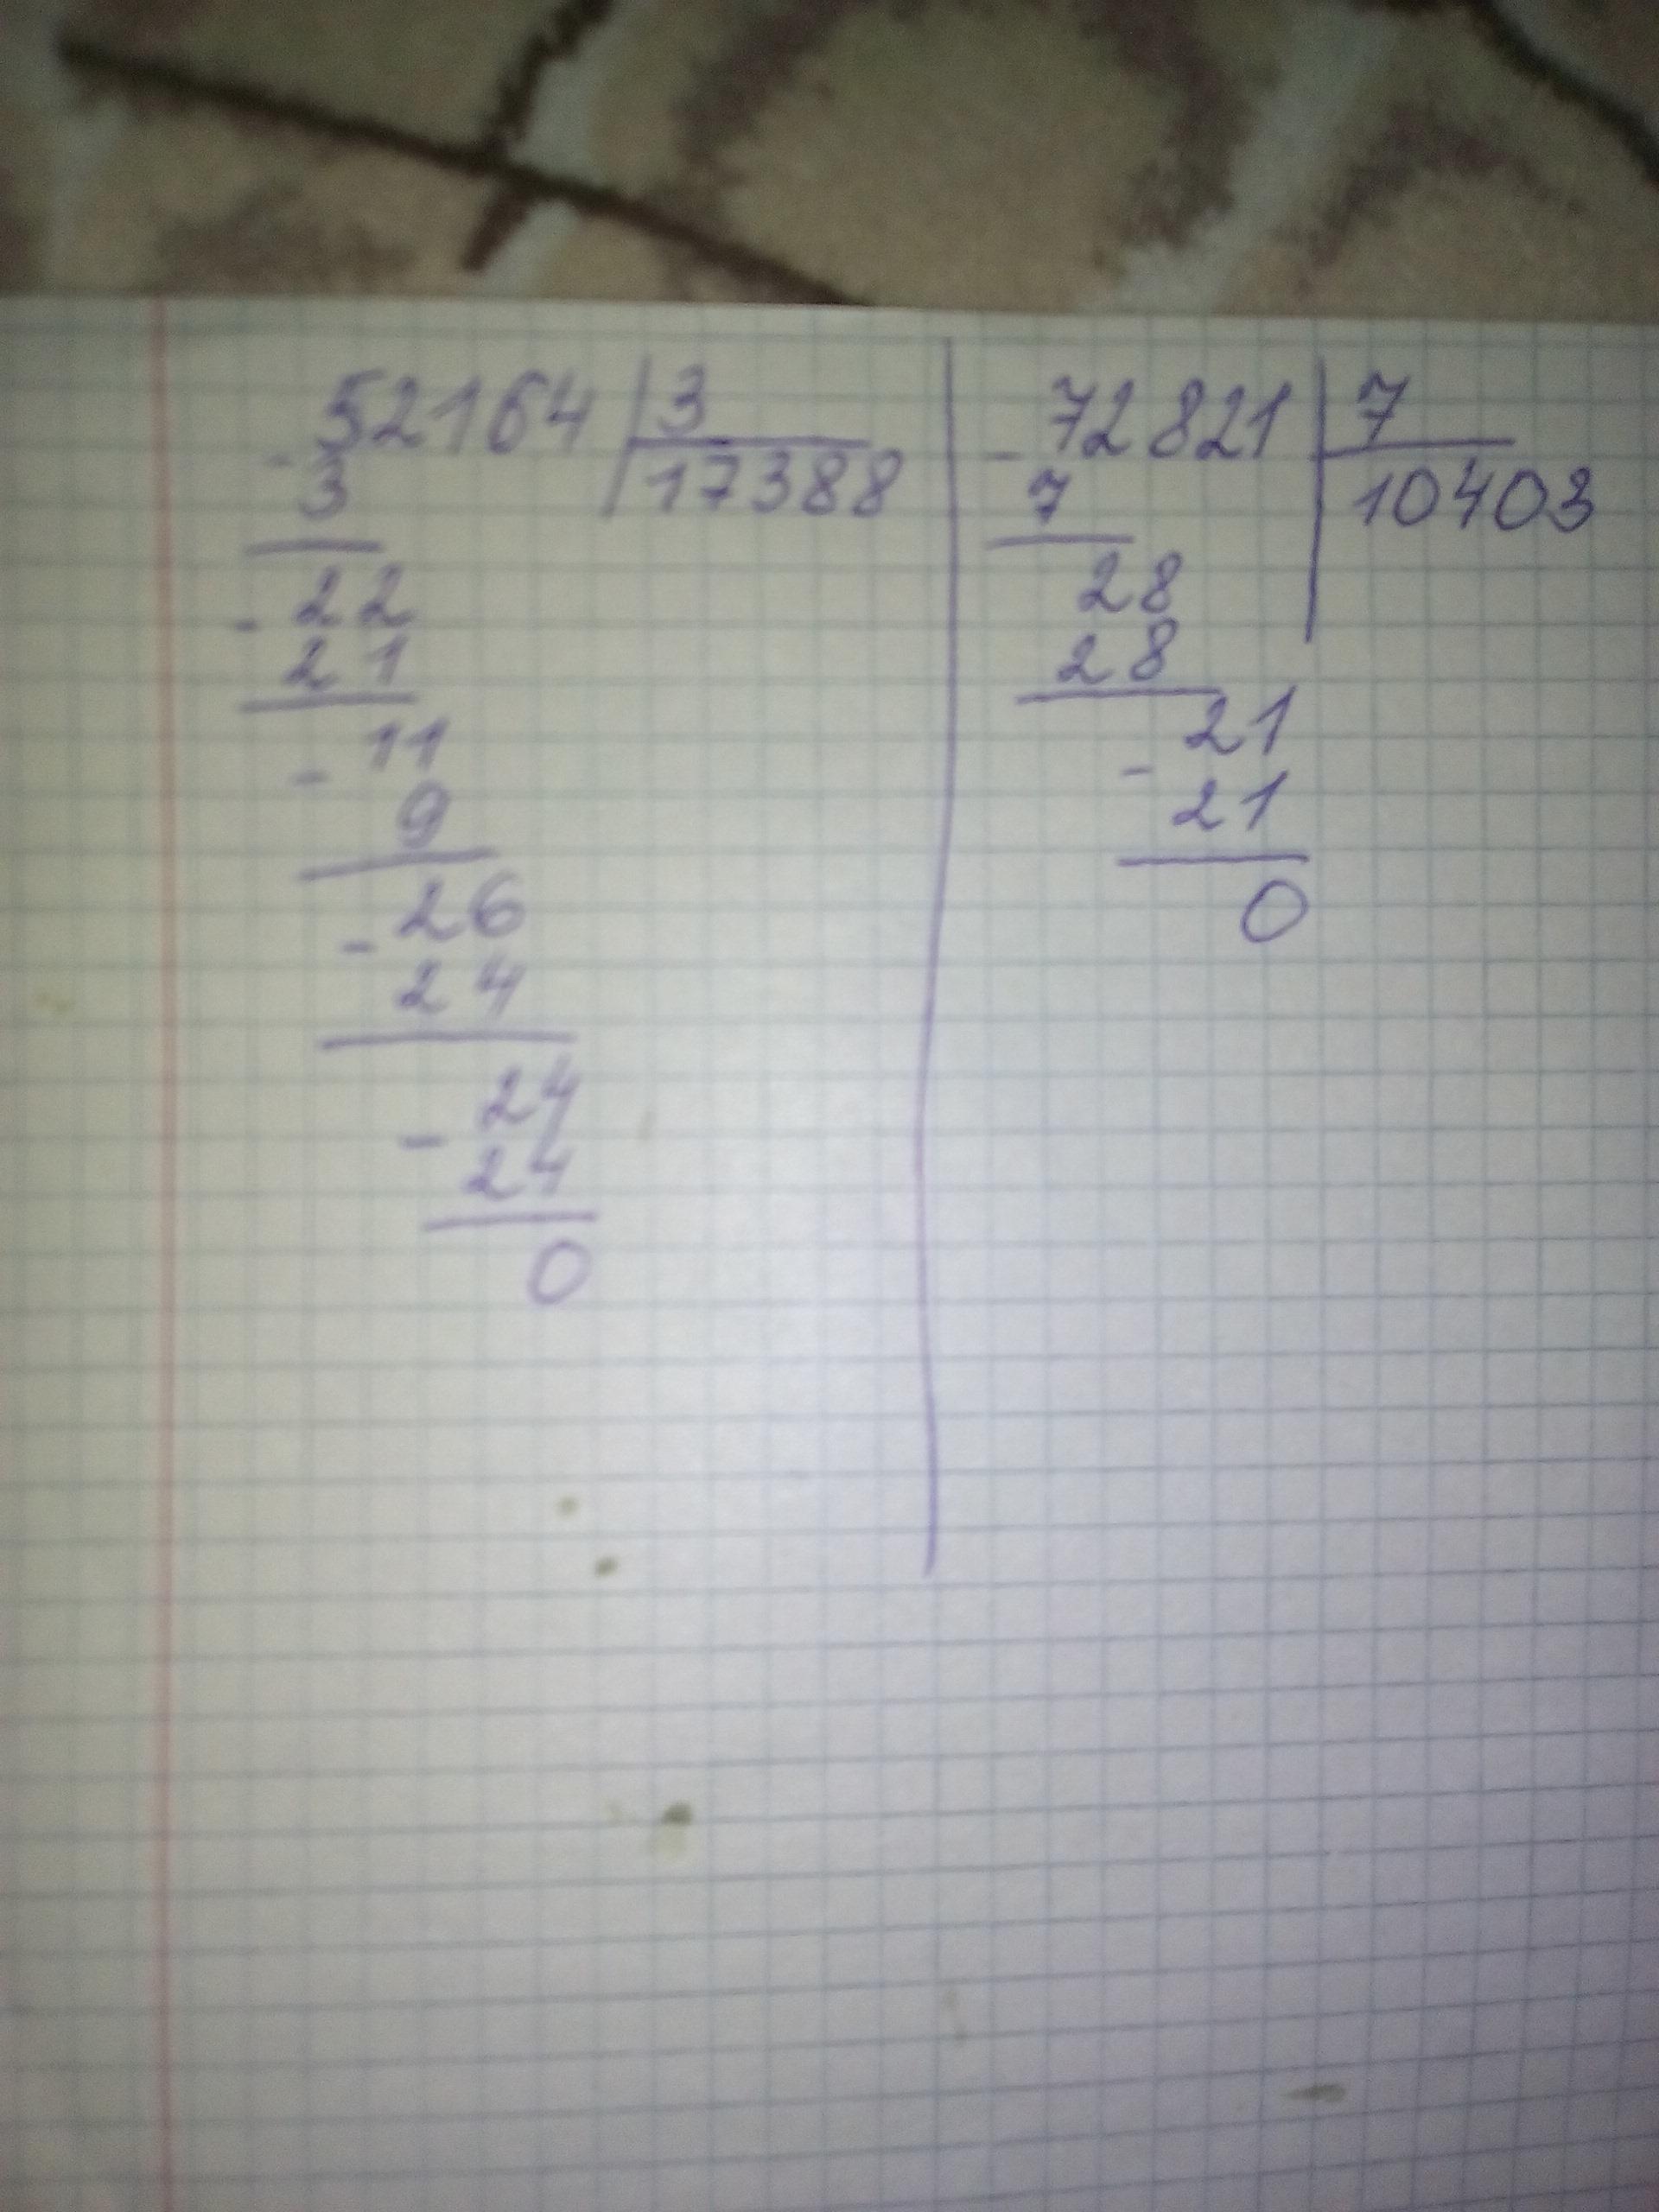 52164 3
- 3 17388
22
- 21
11
- 9
26
- 24
24
- 24
0
72821 7
- 7 10403
28
28
21
- 21
0